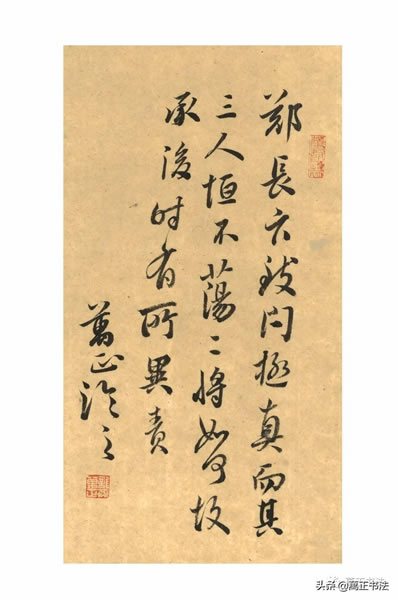 鄭長问極真而其
三人恒不蕩〻將如何故
承後时有所異責
萬正臨之
头条 @萬正书法